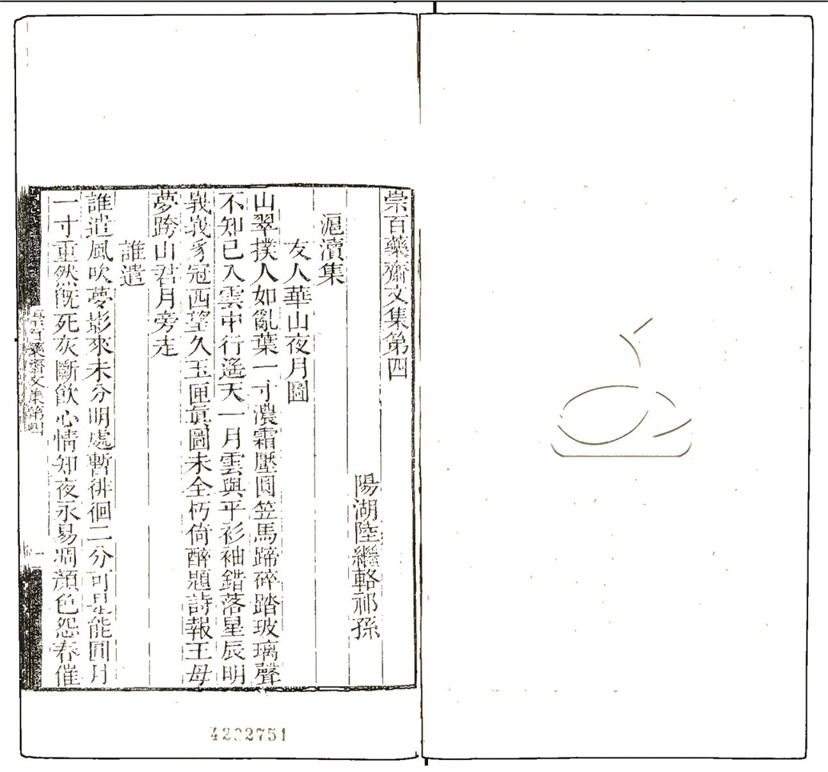 崇百藥齋文集第四
陽湖陸繼輅祁孫
滬瀆集
友人華山夜月圖
山翠撲人如亂葉一寸濃霜壓圓笠馬蹄碎踏玻璃聲
不知已入雲中行遙天一月雲與平衫袖錯落星辰明
峩峩豸冠西望久玉匣眞圖未全朽倚醉題詩報王母
夢跨山君月旁走
誰遣
誰遣風吹夢影來未分明處暫徘徊二分可是能圓月
一寸重然旣死灰斷飮心情知夜永易凋顏色怨春催
崇百藥齋文集第四
一
4232751